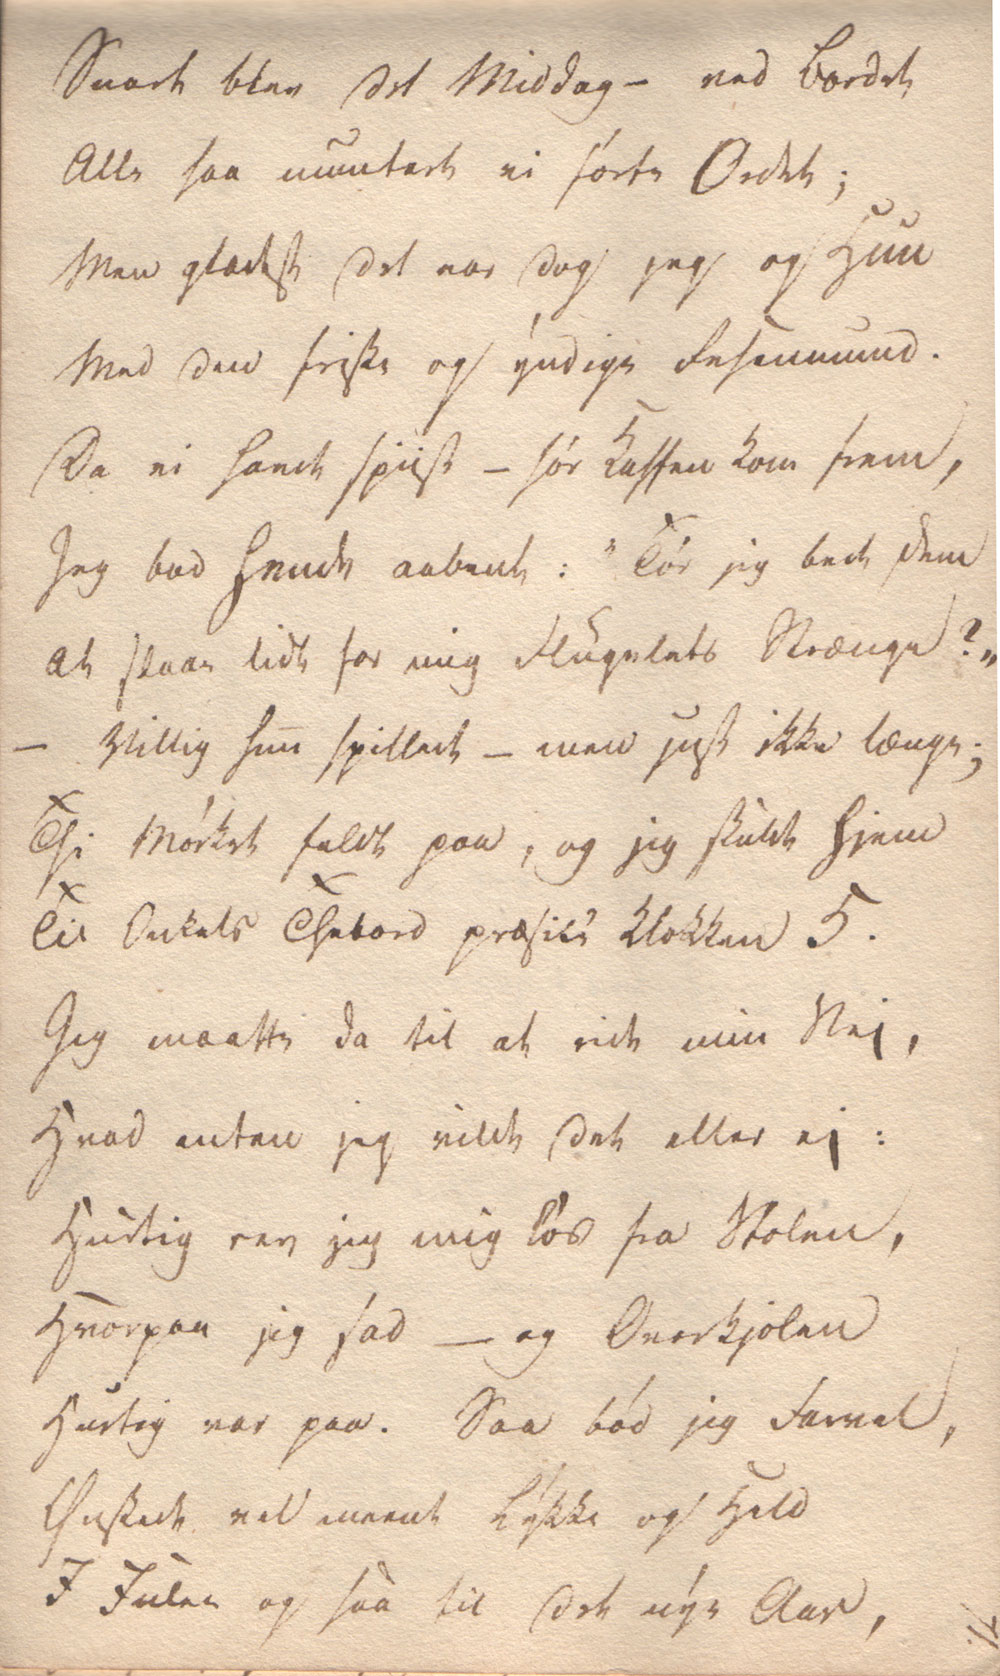 Snart blev det Middag – ved Bordet
Alle saa muntert vi førte Ordet;
Men gladest det var dog jeg og Hun
Med den friske og yndige Rosenmund.
Da vi havde spiist – før Kaffen kom frem,
Jeg bad hende aabent: "Tør jeg bede Dem
At slaae lidt for mig Flygelets Strænge?"
– Villig hun spillede – men just ikke længe;
Thi Mørket faldt paa, og jeg skulde hjem
Til Onkels Thebord præsiis Klokken 5.
Jeg maatte da til at ride min Vej,
Hvad enten jeg vilde det eller ej:
Hurtig rev jeg mig løs fra Stolen,
Hvorpaa jeg sad — og Overkjolen
Hurtig var paa. Saa bød jeg Farvel,
Ønskede vel meent Lykke og Held
I Julen og saa til det nye Aar,